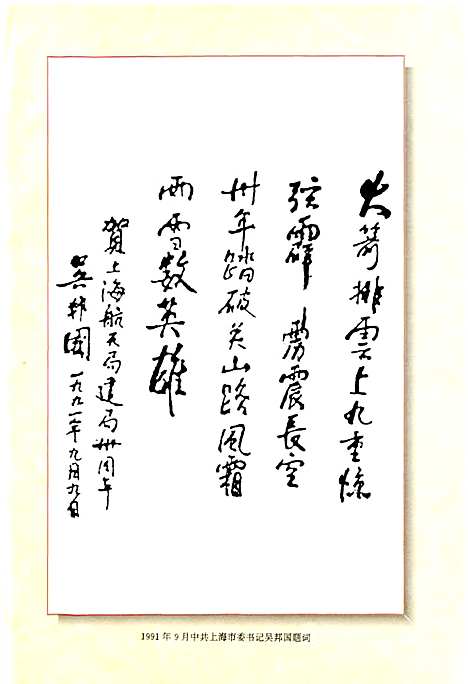 火箭排雲上九重惊
弦霹雳震長空
卅年踏破关山路風霜
雨雪数英雄
賀上海航天局建局卅周年
吴邦國 一九九一年九月九日
1991年9月中共上海市委书记吴邦国题词